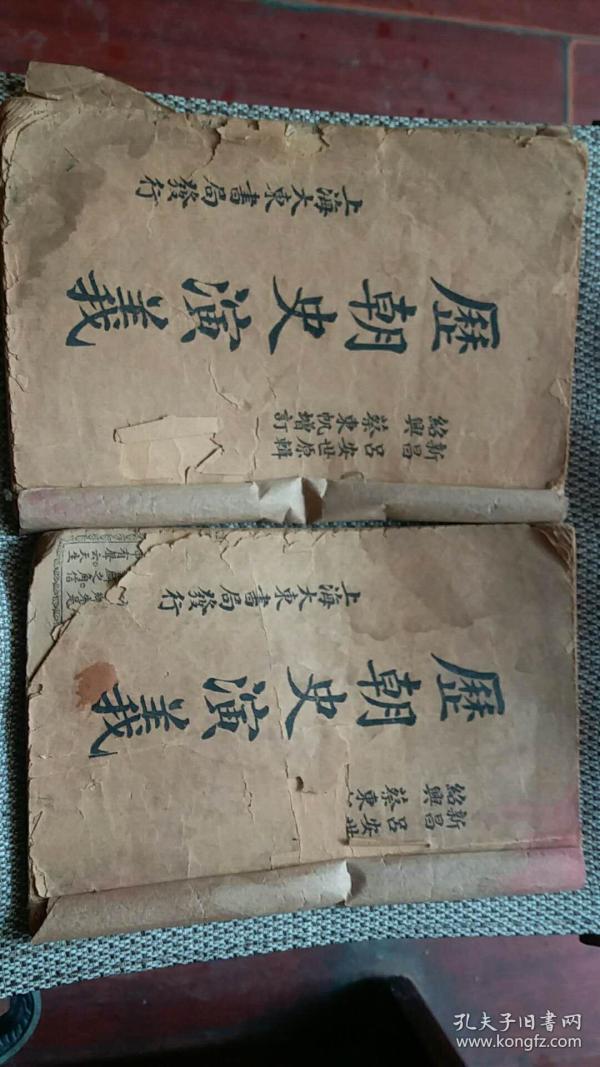 新昌呂安世原輯
紹興蔡東帆增訂
歷朝史演義
上海大東書局發行
新昌呂安世
紹興蔡東
歷朝史演義
上海大東書局發行
孔夫子旧书网
www.kongfz.com